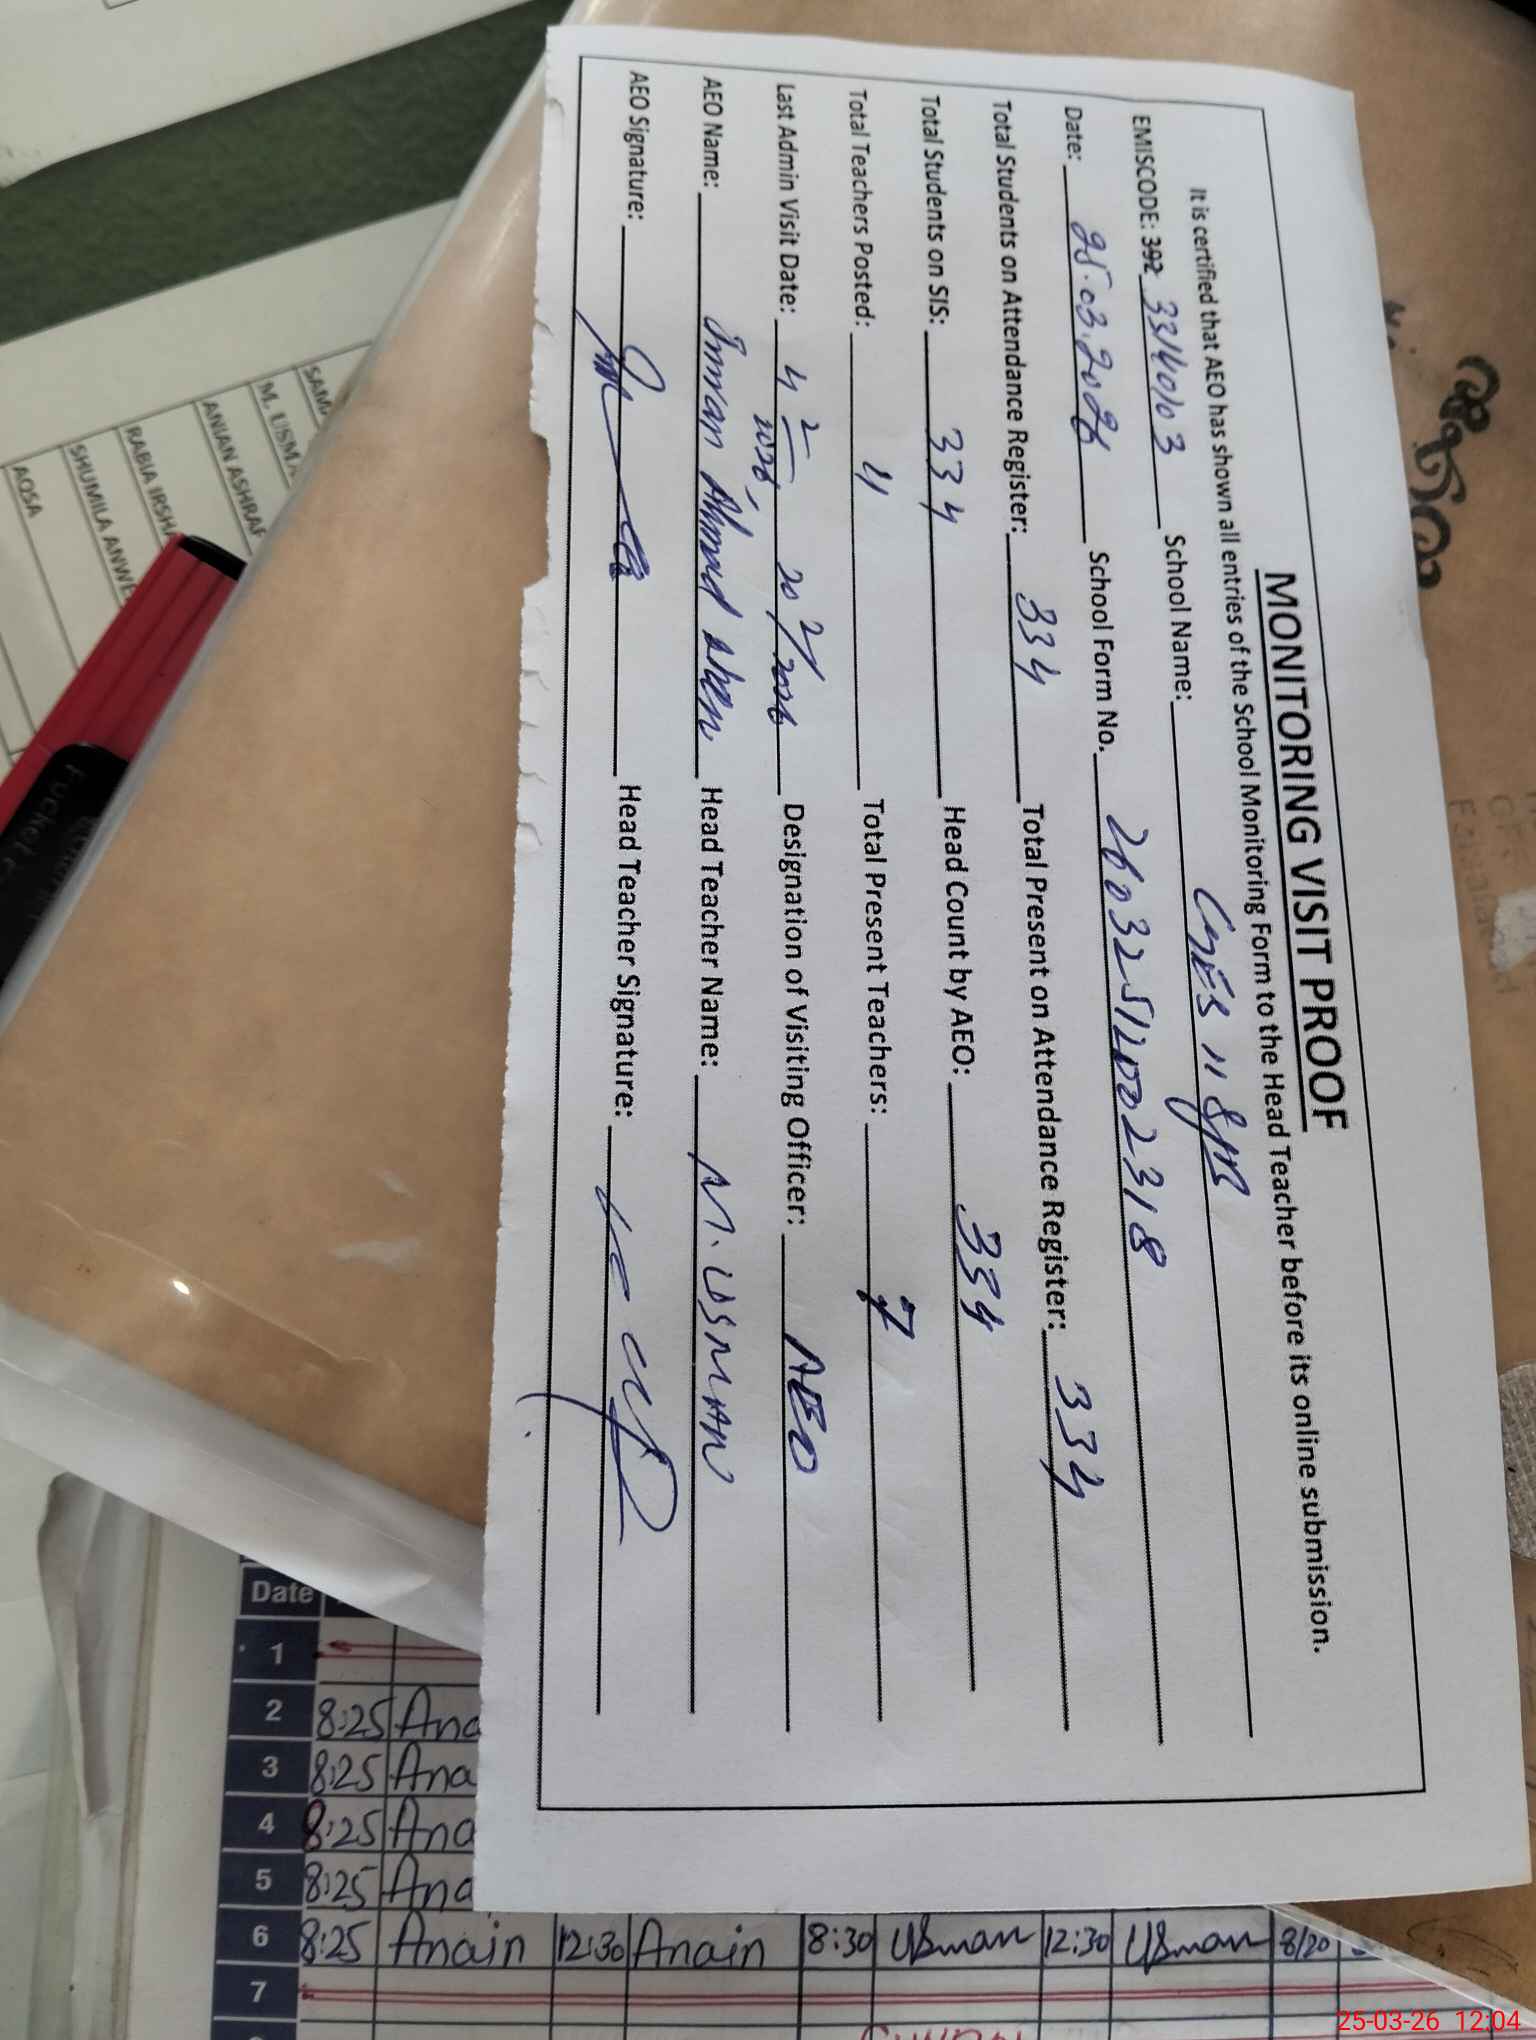 MONITORING VISIT PROOF
It is certified that AEO has shown all entries of the School Monitoring Form to the Head Teacher before its online submission.
EMISCODE: 392 33140103 School Name:
Date: 25.03.2026 School Form No. 26032512002318
Total Students on Attendance Register: 334 Total Present on Attendance Register: 334
Total Students on SIS: 334 Head Count by AEO: 334
Total Teachers Posted: Total Present Teachers: 7
Last Admin Visit Date: 4 2/2026, 20 2/2026 Designation of Visiting Officer: AEO
AEO Name: Imran Ahmad Head Teacher Name: M. USMAN
AEO Signature: Head Teacher Signature:
SAM
M. USMA
ANIAN ASHRAF
RABIA IRSHA
SHUMILA ANWE
AQSA
Date
1
2 8:25 Ana
3 8:25 Ana
4 8:25 Ana
5 8:25 Ana
6 8:25 Anain 12:30 Anain 8:30 Usman 12:30 Usman 8/20
7
25-03-26 12:04